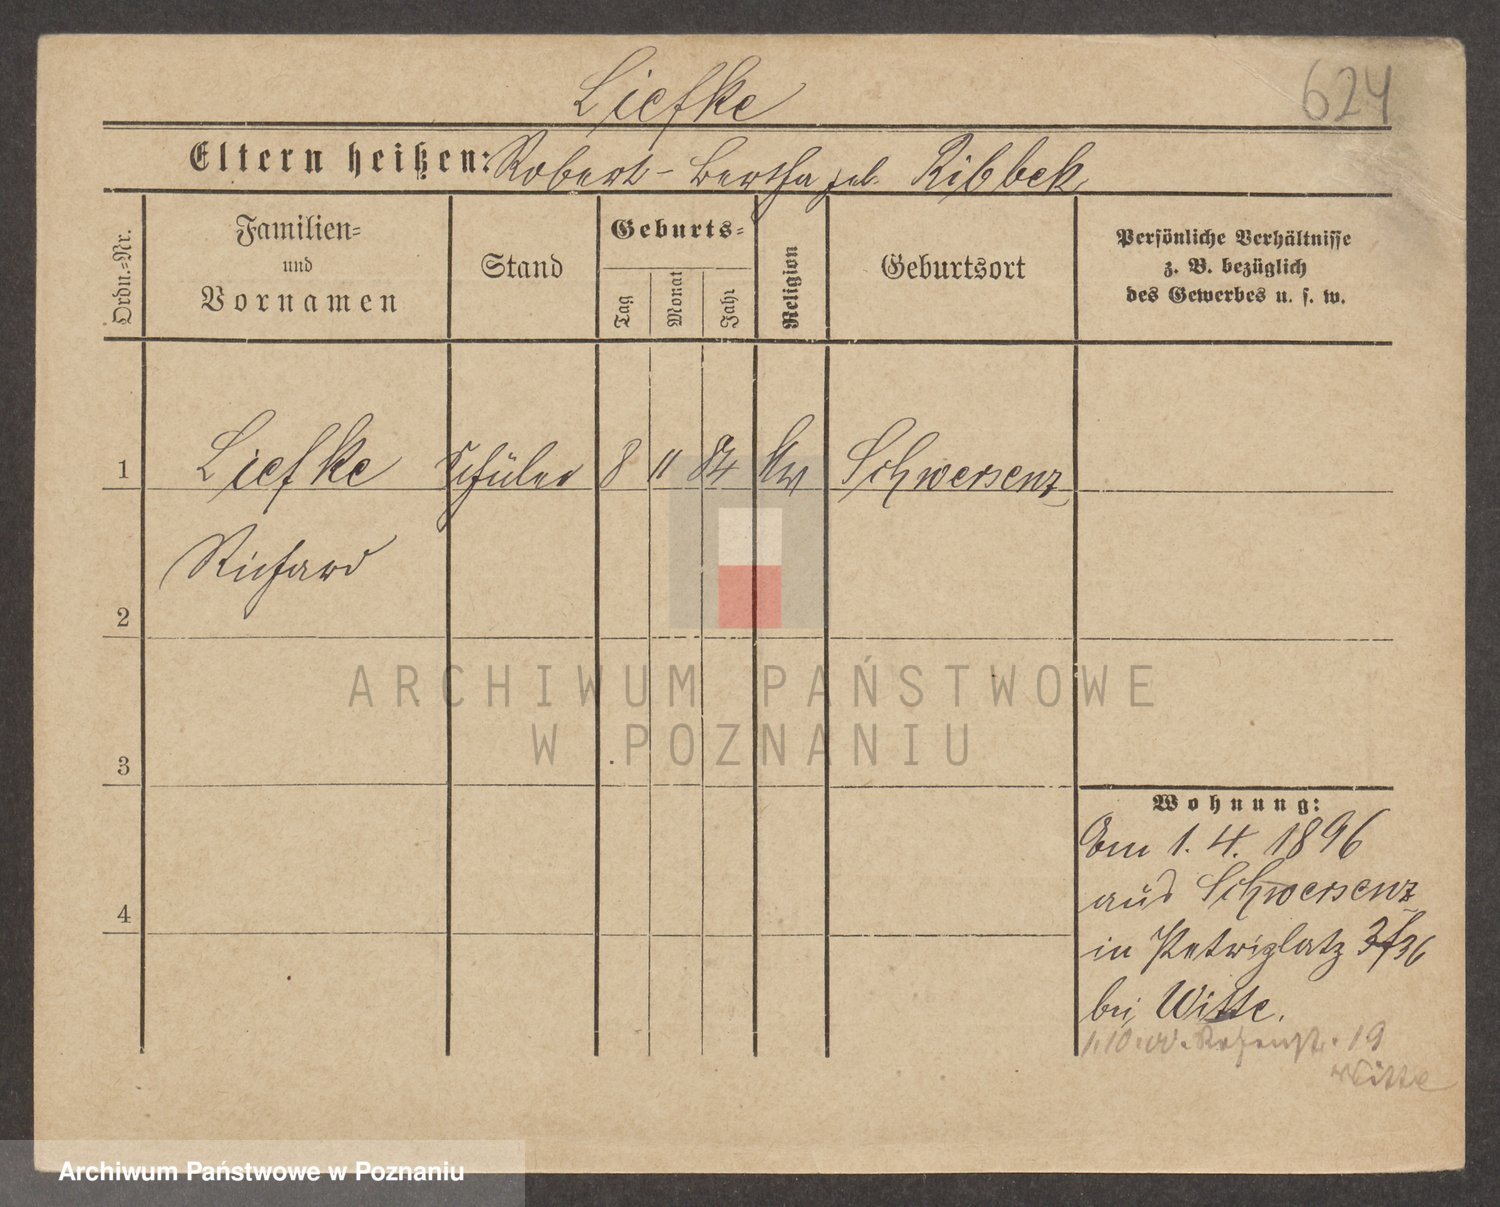 Liefke
624
Eltern heißen: Robert - Bertha geb. Ribbek
Ordn.=Nr.
Familien=
und
Vornamen
Stand
Geburts=
Tag
Monat
Jahr
Religion
Geburtsort
Persönliche Verhältnisse
z. B. bezüglich
des Gewerbes u. s. w.
1 Liefke Schüler 8 11 84 Schwersenz
Richard
2
3
4
Wohnung:
Am 1. 4. 1896
aus Schwersenz
in Petriplatz
bei Witte.
1.10. 19
Witte
ARCHIWUM PAŃSTWOWE
W POZNANIU
Archiwum Państwowe w Poznaniu